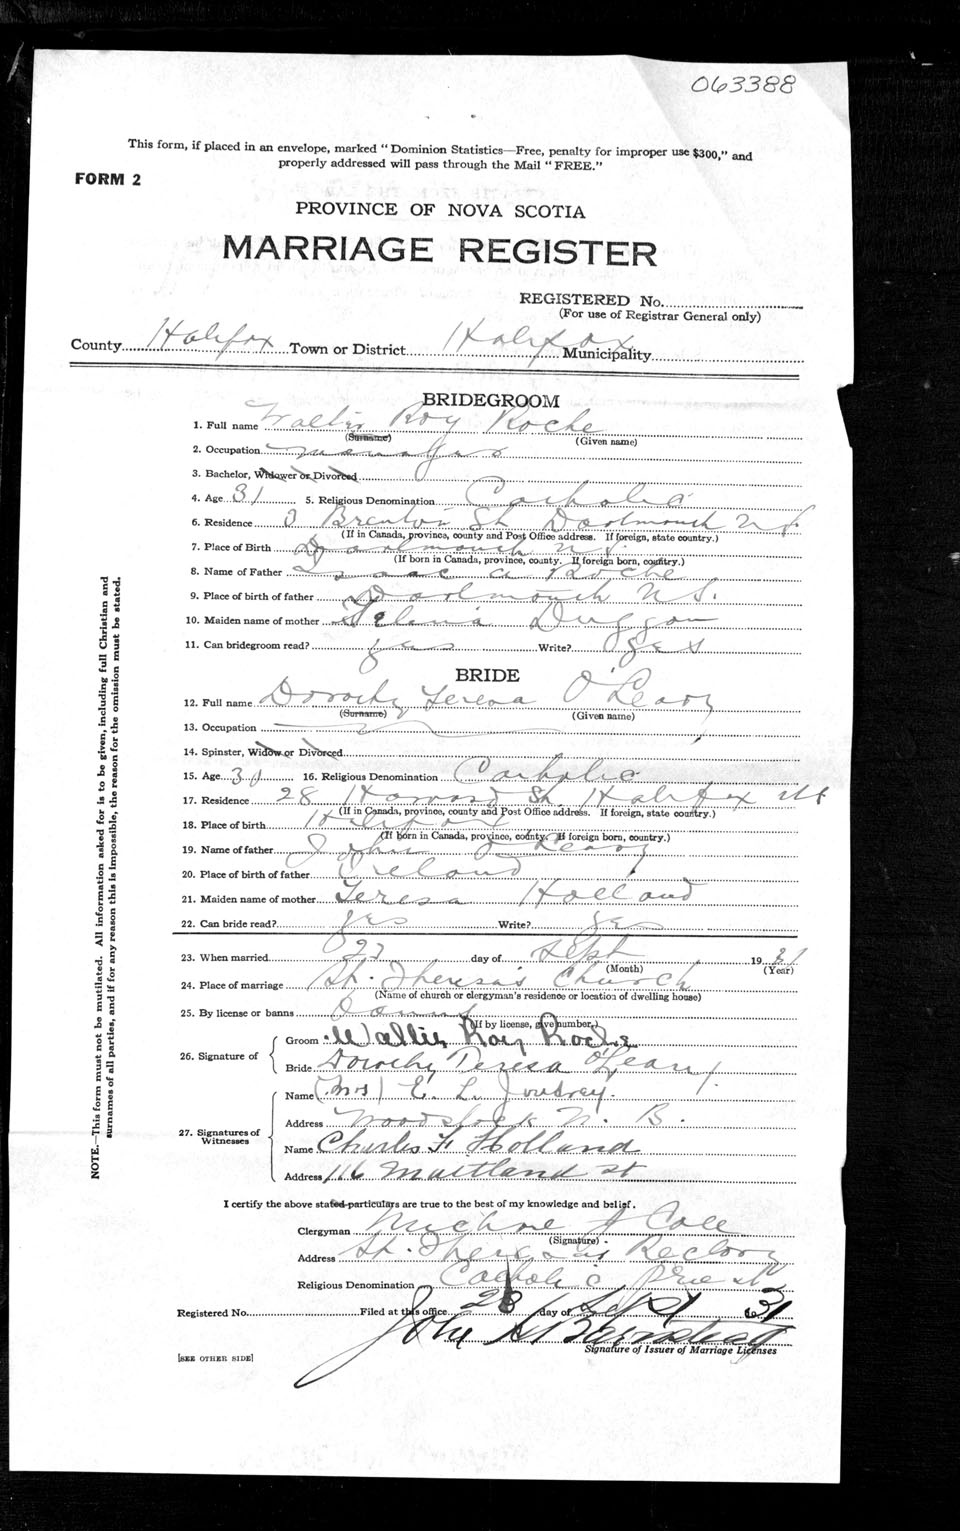 063388
This form, if placed in an envelope, marked "Dominion Statistics—Free, penalty for improper use $300," and
properly addressed will pass through the Mail "FREE."
FORM 2
PROVINCE OF NOVA SCOTIA
MARRIAGE REGISTER
REGISTERED No.
(For use of Registrar General only)
County Halifax Town or District Halifax Municipality
BRIDEGROOM
1. Full name Walter Roy Roche
(Surname) (Given name)
2. Occupation
3. Bachelor, Widower or Divorced
4. Age 31 5. Religious Denomination Catholic
6. Residence 3 Brenton St Dartmouth N S
(If in Canada, province, county and Post Office address. If foreign, state country.)
7. Place of Birth Dartmouth N S.
(If born in Canada, province, county. If foreign born, country.)
8. Name of Father Isaac A Roche
9. Place of birth of father Dartmouth N S.
10. Maiden name of mother Selena Duggan
11. Can bridegroom read? yes Write? yes
BRIDE
12. Full name Dorothy Teresa O'Leary
(Surname) (Given name)
13. Occupation
14. Spinster, Widow or Divorced
15. Age 16. Religious Denomination Catholic
17. Residence 28 Howard St. Halifax N S
(If in Canada, province, county and Post Office address. If foreign, state country.)
18. Place of birth Halifax
(If born in Canada, province, county. If foreign born, country.)
19. Name of father John O'Leary
20. Place of birth of father Ireland
21. Maiden name of mother Teresa Holland
22. Can bride read? yes Write? yes
23. When married 23 day of Sept 19 31
(Month) (Year)
24. Place of marriage St. Theresa's Church
(Name of church or clergyman's residence or location of dwelling house)
25. By license or banns
(If by license, give number.)
26. Signature of
Groom Walter Roy Roche
Bride Dorothy Teresa O'Leary
27. Signatures of Witnesses
Name (Mrs) E. L. Joudrey.
Address Woodstock N. B.
Name Charles F. Holland
Address 116 Maitland St
I certify the above stated particulars are true to the best of my knowledge and belief.
Clergyman A Cole
(Signature)
Address St. Theresa's Rectory
Religious Denomination Catholic Priest
Registered No. Filed at this office 28 day of Sept 1931
John
Signature of Issuer of Marriage Licenses
[SEE OTHER SIDE]
NOTE.—This form must not be mutilated. All information asked for is to be given, including full Christian and
surnames of all parties, and if for any reason this is impossible, the reason for the omission must be stated.